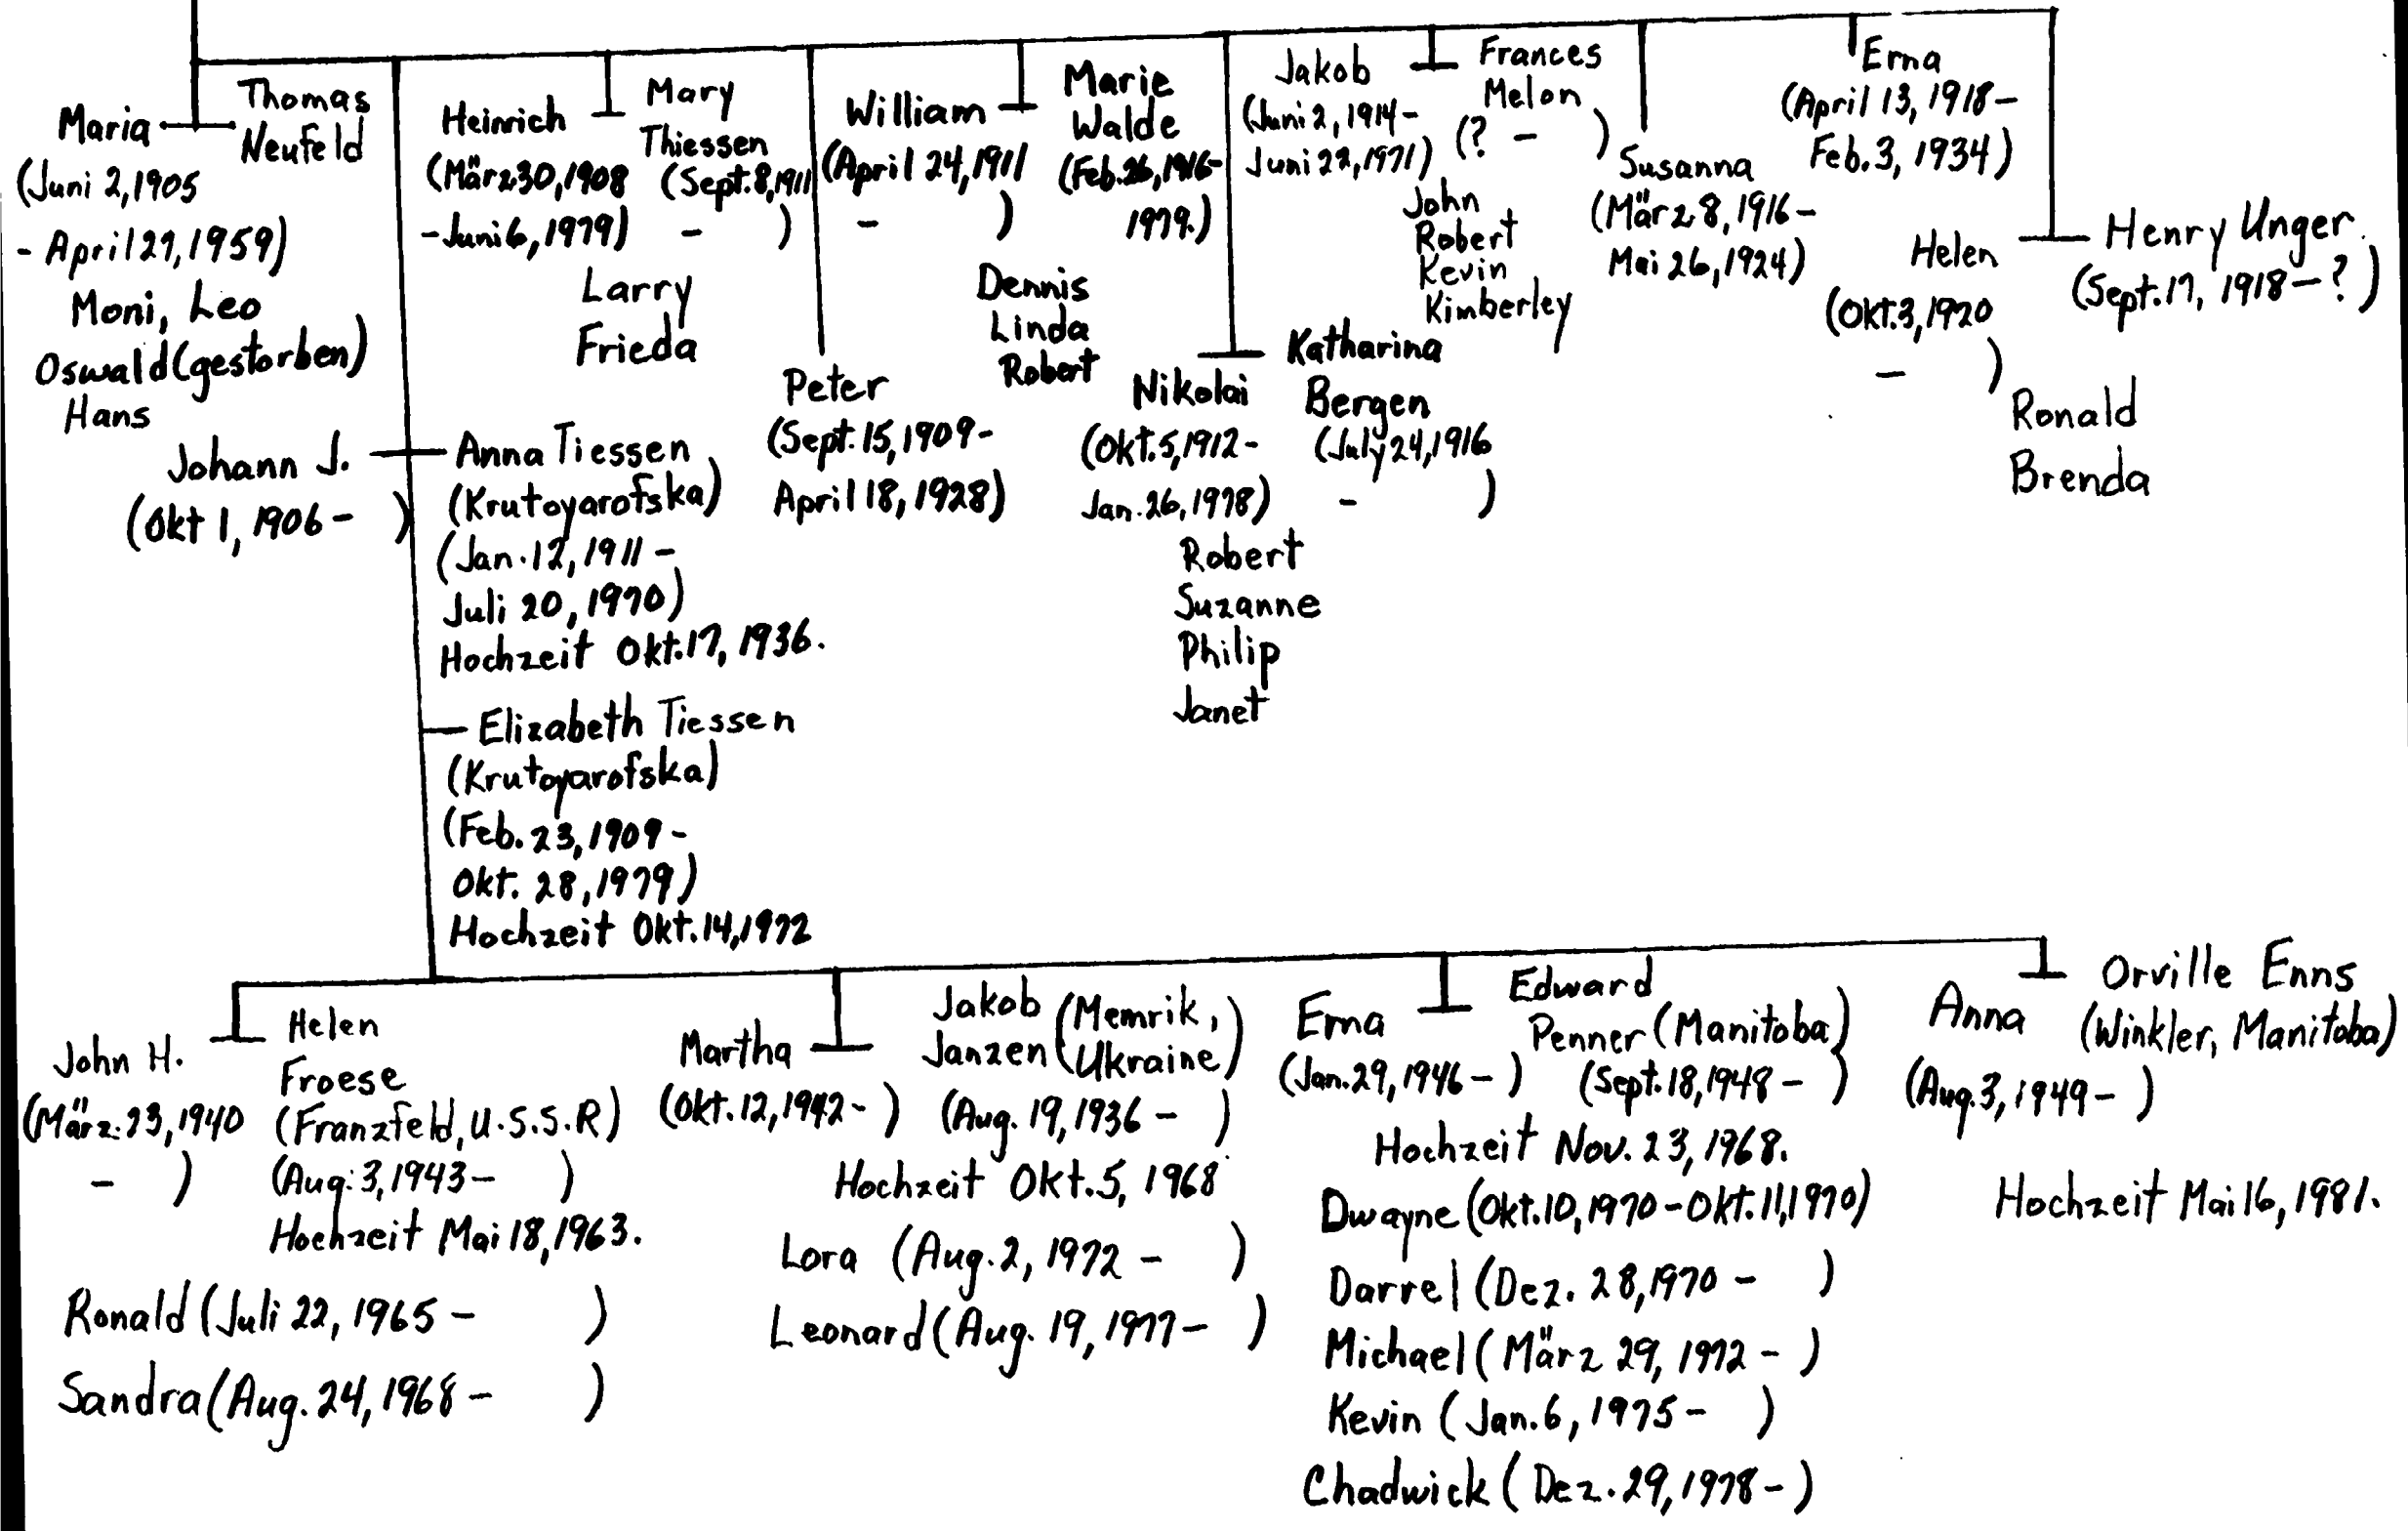 Maria
Thomas
Neufeld
(Juni 2, 1905
- April 27, 1959)
Moni, Leo
Oswald (gestorben)
Hans
Johann J.
(Okt 1, 1906 - )
Anna Tiessen
(Krutoyarofska)
(Jan. 12, 1911 -
Juli 20, 1970)
Hochzeit Okt. 17, 1936.
Elizabeth Tiessen
(Krutoyarofska)
(Feb. 23, 1909 -
Okt. 28, 1979)
Hochzeit Okt. 14, 1972
Heinrich
(März 30, 1908
- Juni 6, 1979)
Mary
Thiessen
(Sept. 8, 1911
- )
Larry
Frieda
Peter
(Sept. 15, 1909 -
April 18, 1928)
William
(April 24, 1911
- )
Marie
Walde
(Feb. 26, 1916 -
1979.)
Dennis
Linda
Robert
Nikolai
(Okt. 5, 1912 -
Jan. 26, 1978)
Katharina
Bergen
(July 24, 1916
- )
Robert
Suzanne
Philip
Janet
Jakob
(Juni 2, 1914 -
Juni 22, 1971)
Frances
Melon
(? - )
John
Robert
Kevin
Kimberley
Susanna
(März 8, 1916 -
Mai 26, 1924)
Erna
(April 13, 1918 -
Feb. 3, 1934)
Helen
(Okt. 3, 1920
- )
Henry Unger
(Sept. 17, 1918 - ?)
Ronald
Brenda
John H.
(März. 23, 1940
- )
Helen
Froese
(Franzfeld, U.S.S.R)
(Aug. 3, 1943 - )
Hochzeit Mai 18, 1963.
Ronald (Juli 22, 1965 - )
Sandra (Aug. 24, 1968 - )
Martha
(Okt. 12, 1942 - )
Jakob (Memrik,
Janzen Ukraine)
(Aug. 19, 1936 - )
Hochzeit Okt. 5, 1968
Lora (Aug. 2, 1972 - )
Leonard (Aug. 19, 1977 - )
Erna
(Jan. 29, 1946 - )
Edward
Penner (Manitoba)
(Sept. 18, 1948 - )
Hochzeit Nov. 23, 1968.
Dwayne (Okt. 10, 1970 - Okt. 11, 1970)
Darrel (Dez. 28, 1970 - )
Michael (März 29, 1972 - )
Kevin (Jan. 6, 1975 - )
Chadwick (Dez. 29, 1978 - )
Anna
(Aug. 3, 1949 - )
Orville Enns
(Winkler, Manitoba)
Hochzeit Mai 16, 1981.